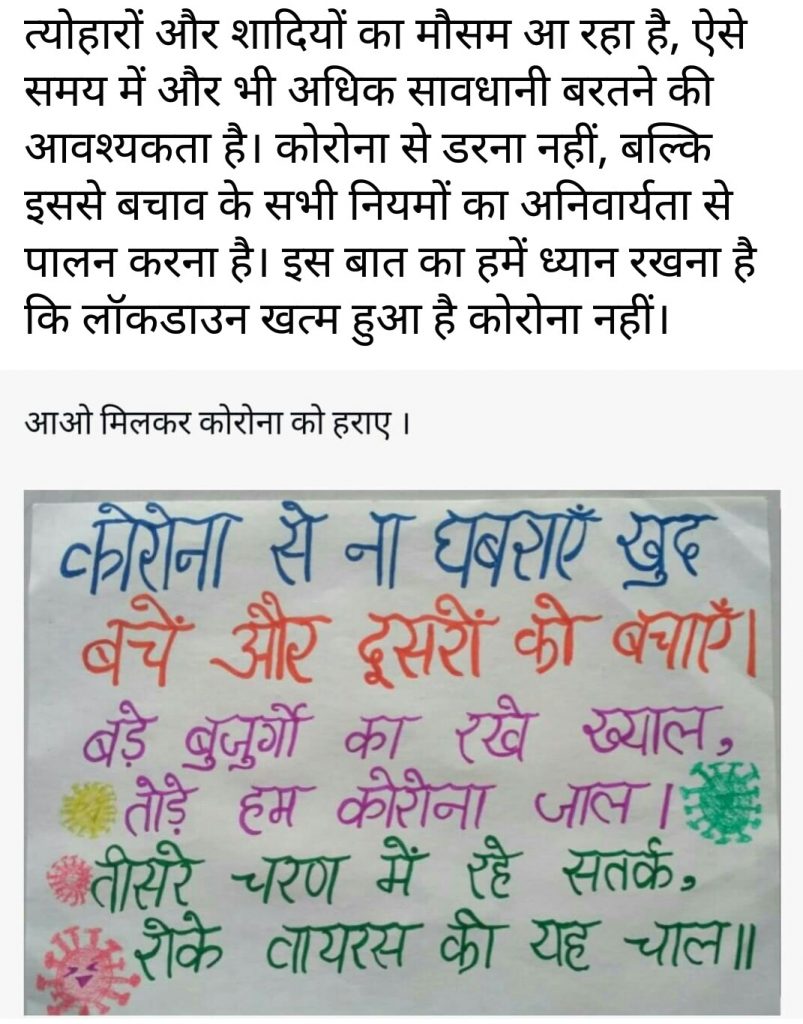 त्योहारों और शादियों का मौसम आ रहा है, ऐसे
समय में और भी अधिक सावधानी बरतने की
आवश्यकता है। कोरोना से डरना नहीं, बल्कि
इससे बचाव के सभी नियमों का अनिवार्यता से
पालन करना है। इस बात का हमें ध्यान रखना है
कि लॉकडाउन खत्म हुआ है कोरोना नहीं।
आओ मिलकर कोरोना को हराए ।
कोरोना से ना घबराएँ खुद
बचें और दूसरों को बचाएँ।
बड़े बुजुर्गो का रखे ख्याल,
तोड़े हम कोरोना जाल।
तीसरे चरण में रहे सतर्क,
रोके वायरस की यह चाल॥